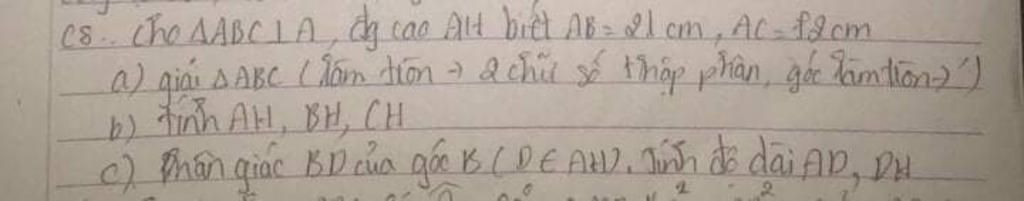 C8.. Cho ΔABC ⊥ A, đg cao AH biết AB = 21 cm, AC = 72cm
a) giải ΔABC (làm tròn → 2 chữ số thập phân, góc làm tròn → ')
b) tính AH, BH, CH
c) Phân giác BD của góc B (D ∈ AH). Tính độ dài AD, DH